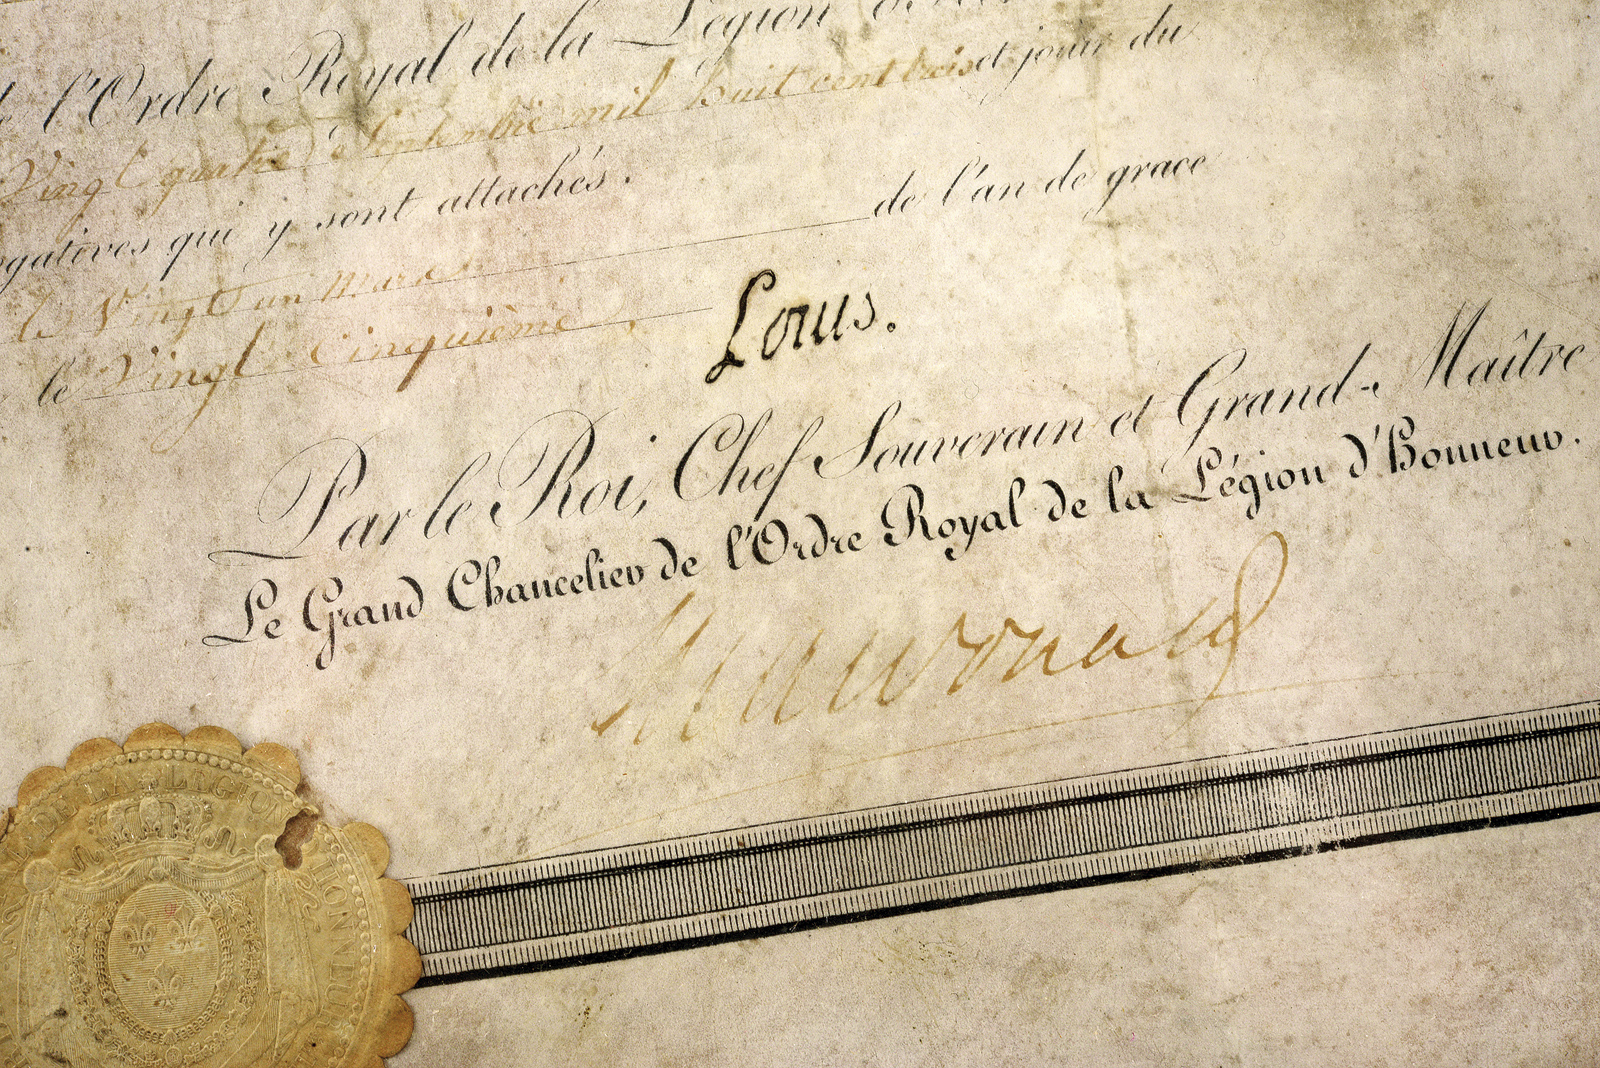 l'Ordre Royal de la Légion
Vingt quatre Septembre mil huit cent trois et jouir du
gatives qui y sont attachés.
le Vingt un Mars de l'an de grace
le Vingt Cinquième
Louis.
Par le Roi, Chef Souverain et Grand-Maître
Le Grand Chancelier de l'Ordre Royal de la Légion d'Honneur.
Macdonald
DE LA LEGION D'HONNEUR